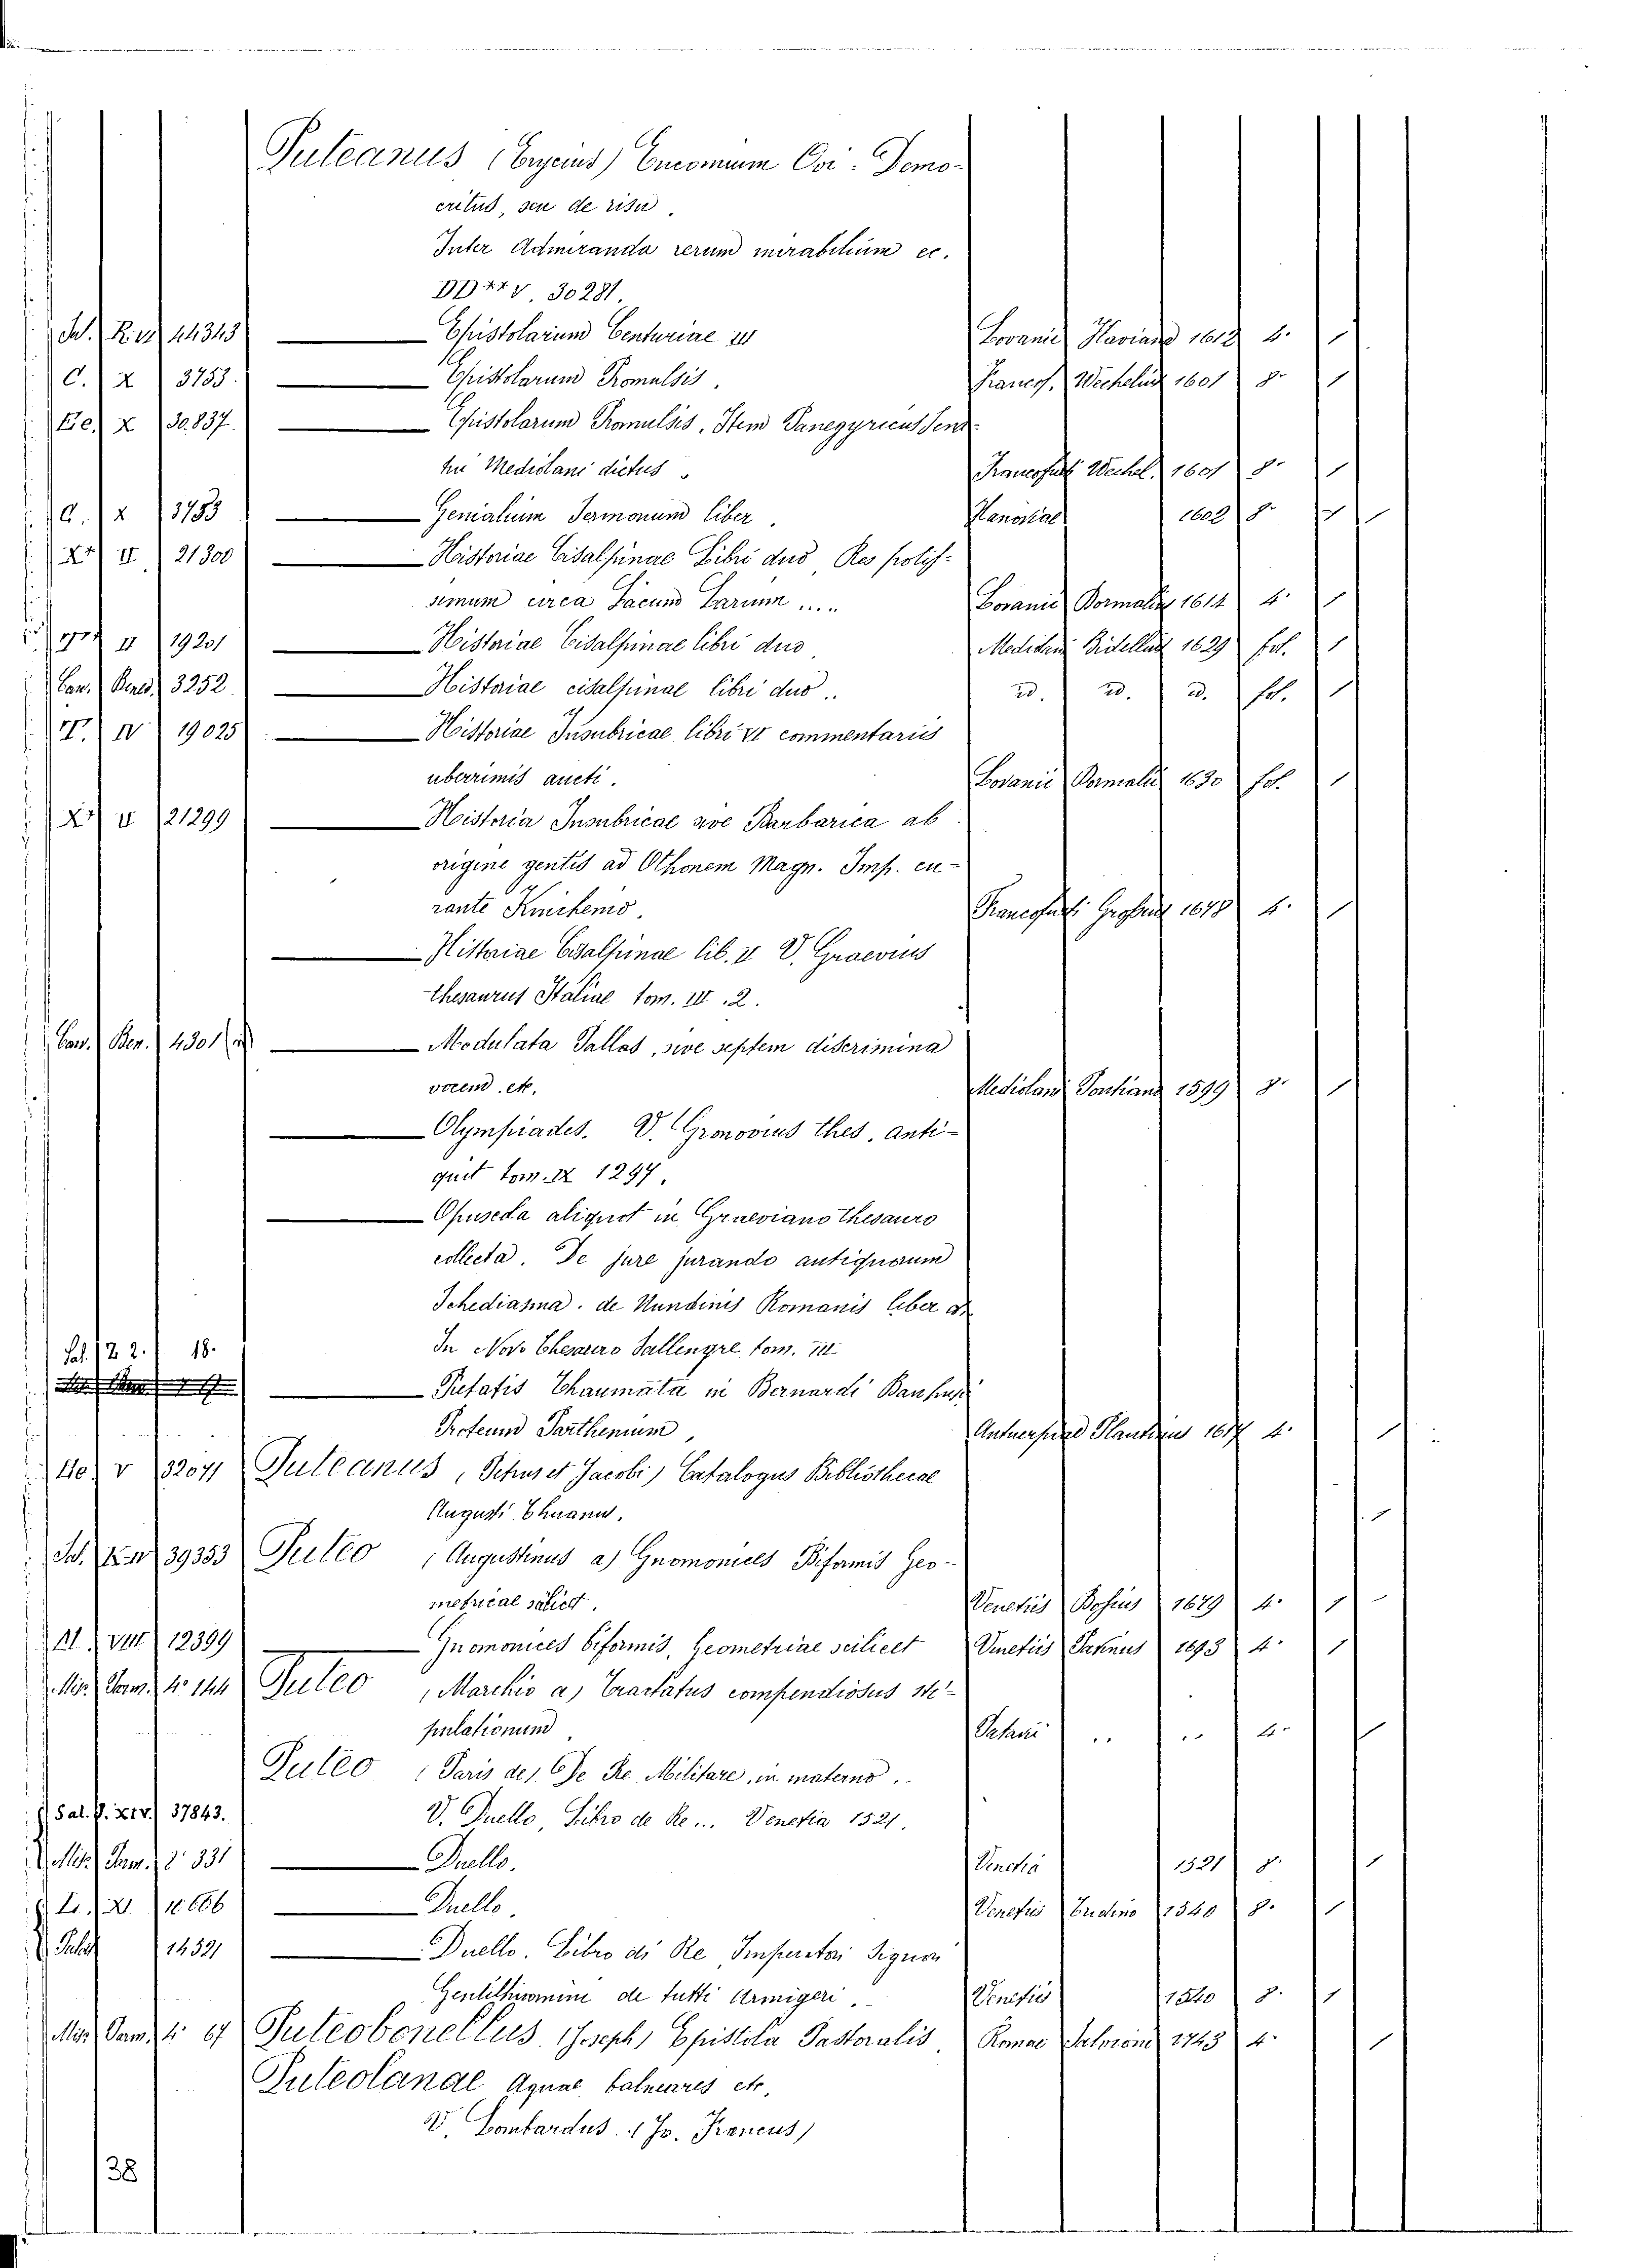 Puteanus (Erycius) Encomium Ovi. Demo-
critus, seu de risu.
Inter Admiranda rerum mirabilium ec.
DD ++ V 30281.
44343 — Epistolarum Centuriae III Lovanii Flavians 1612 4. 1
C. X 3753. — Epistolarum Promulsis. Francof. Wechelius 1601 8. 1
Ee. X 30.837. — Epistolarum Promulsis, Item Panegyricus Sena-
tui Mediolani dictus. Francofurti Wechel. 1601 8. 1
C. X 3753 — Genialium Sermonum liber. Hanoviae 1602 8. 1
X+ II 21300 — Historiae Cisalpinae Libri duo, Res potis-
simum circa Lacum Larium .... Lovanii Dormalius 1614 4. 1
II 19201 — Historiae Cisalpinae libri duo. Mediolani Bidellius 1629 fol. 1
Can. Bered. 3252 — Historiae cisalpinae libri duo. id. id. id. fol. 1
T. IV 19025 — Historiae Insubricae libri VI commentariis
uberrimis aucti. Lovanii Dormalii 1630 fol. 1
X+ II 21299 — Historia Insubricae sive Barbarica ab
origine gentis ad Othonem Magn. Imp. cu-
rante Knichenio. Francofurti Grossius 1678 4. 1
— Historiae Cisalpinae lib. II V. Graevius
thesaurus Italiae tom. III. 2.
Can. Ben. 4301 — Modulata Pallas, sive septem discrimina
vocum etc. Mediolani Pontiana 1599 8. 1
— Olympiades. V. Gronovius thes. anti-
quit tom. IX 1297.
— Opuscula aliquot in Graeviano thesauro
collecta. De jure jurando antiquorum
Schediasma. de Nundinis Romanis liber etc
In Novo Thesauro Sallengre tom. III
Sal. Z 2. 18. — Pietatis Thaumata in Bernardi Bauhusi
Proteum Parthenium, Antuerpiae Plantinus 1617 4. 1
He. V 32071 Puteanus (Petrus et Jacobi) Catalogus Bibliothecae
Augusti Thuani. 1
39353 Puteo (Augustinus a) Gnomonices Biformis Geo-
metricae scilicet. Venetiis Bosius 1679 4. 1
Al. VIII 12399 — Gnomonices biformis, Geometriae scilicet Venetiis 1693 4. 1
Mis. Tom. 4. 144 Puteo (Marchio a) Tractatus compendiosus sti-
pulationum, .. .. 4. 1
Puteo (Paris de) De Re Militare, in materno.
Sal. P. XIV. 37843. V. Duello, Libro de Re... Venetia 1521.
Mis. Tom. 8. 331 — Duello. Venetia 1521 8. 1
L. XI. 11.606 — Duello. Venetiis Tridino 1540 8. 1
14521 — Duello. Libro di Re, Imperatori Signori
Gentilhuomini de tutti Armigeri. Venetiis 1540 8. 1
Mis. Tom. 4. 67 Puteobonellus (Joseph) Epistola Pastoralis. Romae Salvioni 1743 4. 1
Puteolanae Aquae balneares etc.
V. Lombardus (Jo. Francus)
38